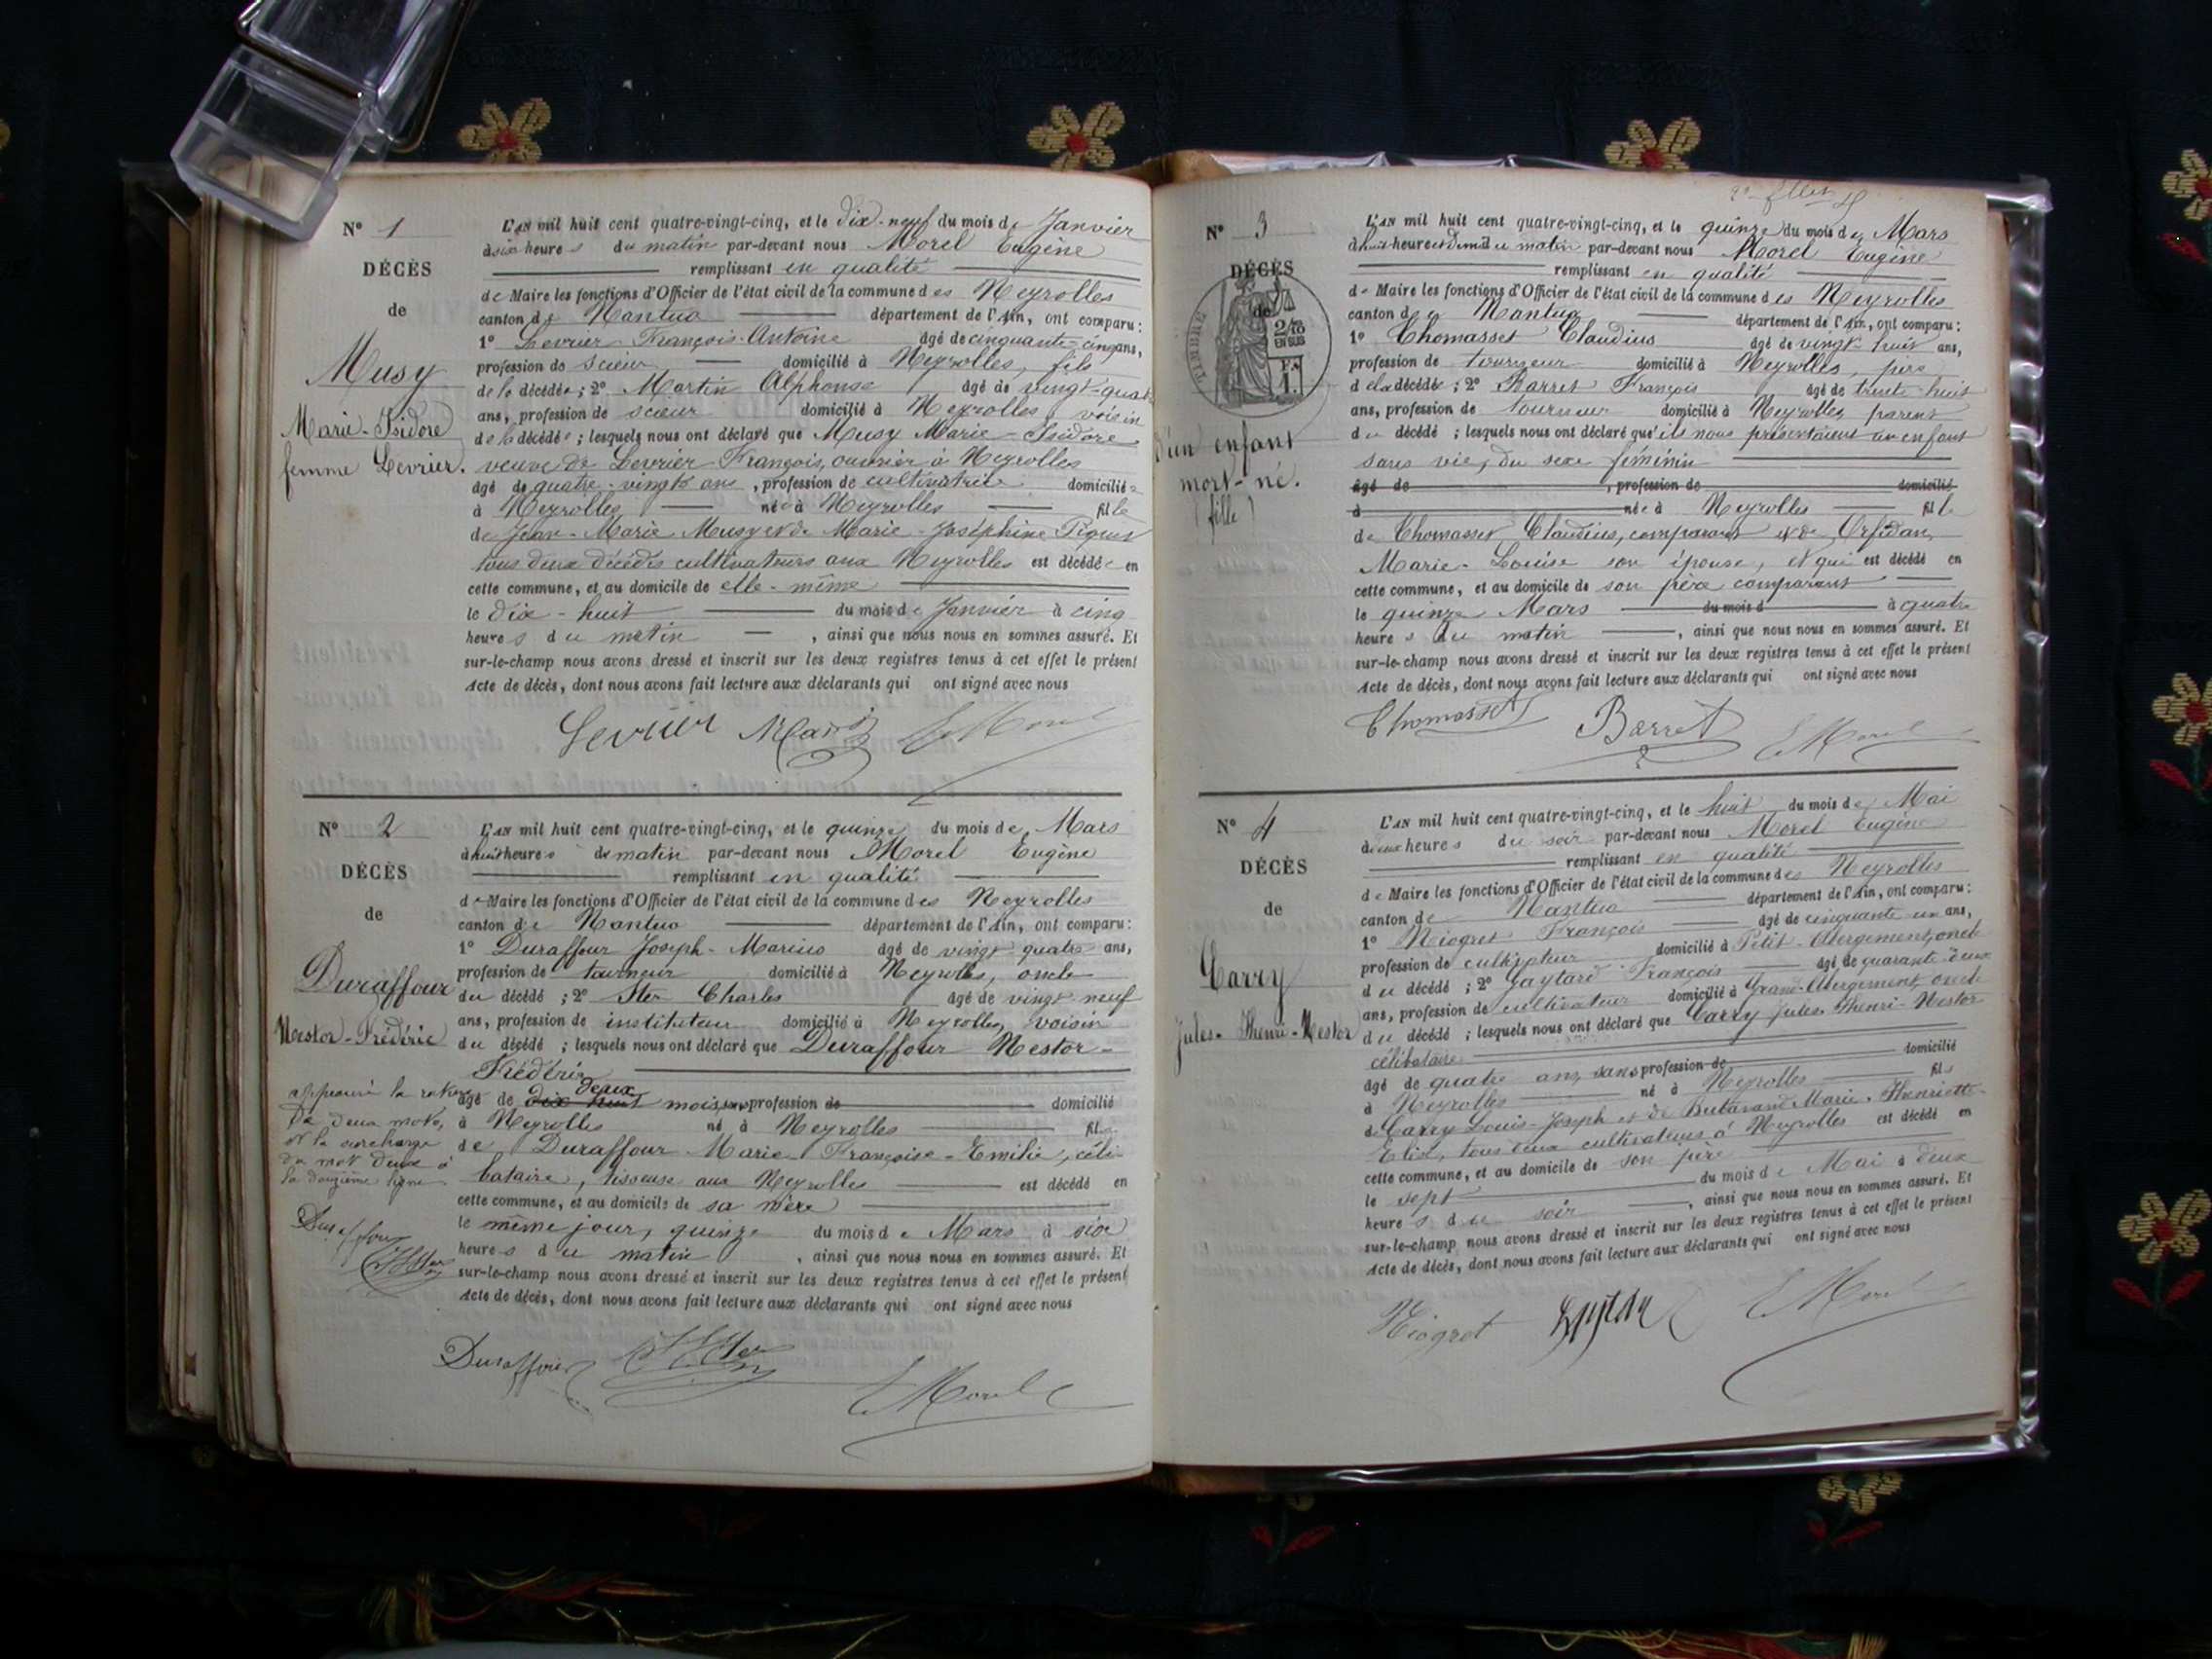 N° 1
DÉCÈS
de
Musy
Marie-Isidore
femme Levrier.
L'AN mil huit cent quatre-vingt-cinq, et le dix-neuf du mois de Janvier
à six heures du matin par-devant nous Morel Eugène
remplissant en qualité
de Maire les fonctions d'Officier de l'état civil de la commune des Neyrolles
canton de Nantua département de l'Ain, ont comparu :
1° Levrier François-Antoine âgé de cinquante-cinq ans,
profession de scieur domicilié à Neyrolles, fils
de la décédée ; 2° Martin Alphonse âgé de vingt-quatre
ans, profession de scieur domicilié à Neyrolles voisin
de la décédée ; lesquels nous ont déclaré que Musy Marie-Isidore
veuve de Levrier François, ouvrier à Neyrolles
âgé de quatre-vingts ans, profession de cultivatrice domiciliée
à Neyrolles née à Neyrolles fille
de Jean-Marie Musy et de Marie-Joséphine Piquet
tous deux décédés cultivateurs aux Neyrolles est décédée en
cette commune, et au domicile de elle-même
le dix-huit du mois de Janvier à cinq
heures du matin , ainsi que nous nous en sommes assuré. Et
sur-le-champ nous avons dressé et inscrit sur les deux registres tenus à cet effet le présent
Acte de décès, dont nous avons fait lecture aux déclarants qui ont signé avec nous
Levrier Martin E Morel
N° 2
DÉCÈS
de
Duraffour
Nestor-Frédéric
approuvé la rature
de deux mots,
et la surcharge
du mot deux à
la douzième ligne
Duraffour
L'AN mil huit cent quatre-vingt-cinq, et le quinze du mois de Mars
à huit heures du matin par-devant nous Morel Eugène
remplissant en qualité
de Maire les fonctions d'Officier de l'état civil de la commune des Neyrolles
canton de Nantua département de l'Ain, ont comparu :
1° Duraffour Joseph-Marius âgé de vingt-quatre ans,
profession de tourneur domicilié à Neyrolles, oncle
du décédé ; 2° Ster Charles âgé de vingt-neuf
ans, profession de instituteur domicilié à Neyrolles, voisin
du décédé ; lesquels nous ont déclaré que Duraffour Nestor-
Frédéric
âgé de dix huit deux mois, sans profession de domicilié
à Neyrolles né à Neyrolles fils
de Duraffour Marie-Françoise-Emilie, céli-
bataire, tisseuse aux Neyrolles est décédé en
cette commune, et au domicile de sa mère
le même jour, quinze du mois de Mars à six
heures du matin , ainsi que nous nous en sommes assuré. Et
sur-le-champ nous avons dressé et inscrit sur les deux registres tenus à cet effet le présent
Acte de décès, dont nous avons fait lecture aux déclarants qui ont signé avec nous
Duraffour Ster E Morel
N° 3
DÉCÈS
de
TIMBRE
2/10
EN SUS
1 F.
d'un enfant
mort-né.
(fille)
L'AN mil huit cent quatre-vingt-cinq, et le quinze du mois de Mars
à huit heures et demi du matin par-devant nous Morel Eugène
remplissant en qualité
de Maire les fonctions d'Officier de l'état civil de la commune des Neyrolles
canton de Nantua département de l'Ain, ont comparu :
1° Thomasset Claudius âgé de vingt-huit ans,
profession de tourneur domicilié à Neyrolles, père
de la décédée ; 2° Barret François âgé de trente-huit
ans, profession de tourneur domicilié à Neyrolles parent
du décédé ; lesquels nous ont déclaré qu'ils nous présentaient un enfant
sans vie, du sexe féminin
âgé de , profession de domicilié
à née à Neyrolles fille
de Thomasset Claudius, comparant et de Orfidan,
Marie-Louise son épouse, et qui est décédé en
cette commune, et au domicile de son père comparant
le quinze Mars du mois d à quatre
heures du matin , ainsi que nous nous en sommes assuré. Et
sur-le-champ nous avons dressé et inscrit sur les deux registres tenus à cet effet le présent
Acte de décès, dont nous avons fait lecture aux déclarants qui ont signé avec nous
Thomasset Barret E Morel
N° 4
DÉCÈS
de
Carry
Jules-Henri-Nestor
L'AN mil huit cent quatre-vingt-cinq, et le huit du mois de Mai
à deux heures du soir par-devant nous Morel Eugène
remplissant en qualité
de Maire les fonctions d'Officier de l'état civil de la commune des Neyrolles
canton de Nantua département de l'Ain, ont comparu :
1° Niogret François âgé de cinquante un ans,
profession de cultivateur domicilié à Petit-Abergement, oncle
du décédé ; 2° Gaytard François âgé de quarante-deux
ans, profession de cultivateur domicilié à Grand-Abergement, oncle
du décédé ; lesquels nous ont déclaré que Carry Jules-Henri-Nestor
célibataire
âgé de quatre ans, sans profession de domicilié
à Neyrolles né à Neyrolles fils
de Carry Louis-Joseph et de Butavand Marie-Henriette-
Elise, tous deux cultivateurs à Neyrolles est décédé en
cette commune, et au domicile de son père
le sept du mois de Mai à deux
heures du soir , ainsi que nous nous en sommes assuré. Et
sur-le-champ nous avons dressé et inscrit sur les deux registres tenus à cet effet le présent
Acte de décès, dont nous avons fait lecture aux déclarants qui ont signé avec nous
Niogret E Morel